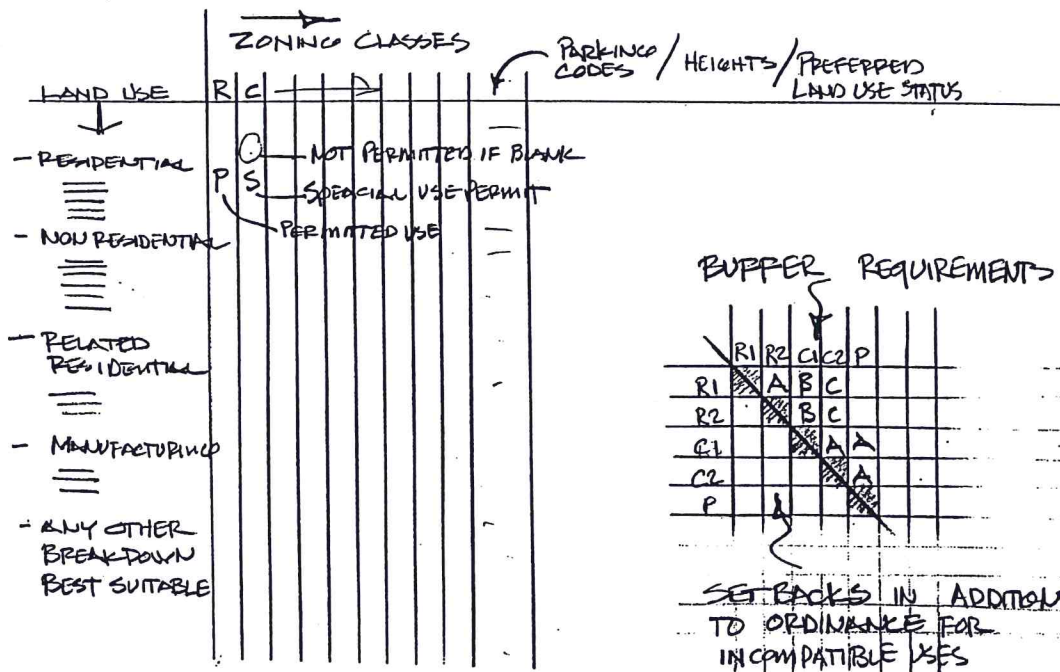 ZONING CLASSES
PARKING CODES / HEIGHTS / PREFERRED LAND USE STATUS
LAND USE R C
- RESIDENTIAL
NOT PERMITTED IF BLANK
P S SPEACIAL USE PERMIT
PERMITTED USE
- NON RESIDENTIAL
- RELATED
RESIDENTIAL
- MANUFACTURING
- ANY OTHER
BREAKDOWN
BEST SUITABLE
BUFFER REQUIREMENTS
R1 R2 C1 C2 P
R1 A B C
R2 B C
C1 A A
C2 A
P
SET BACKS IN ADDITION
TO ORDINANCE FOR
INCOMPATIBLE USES